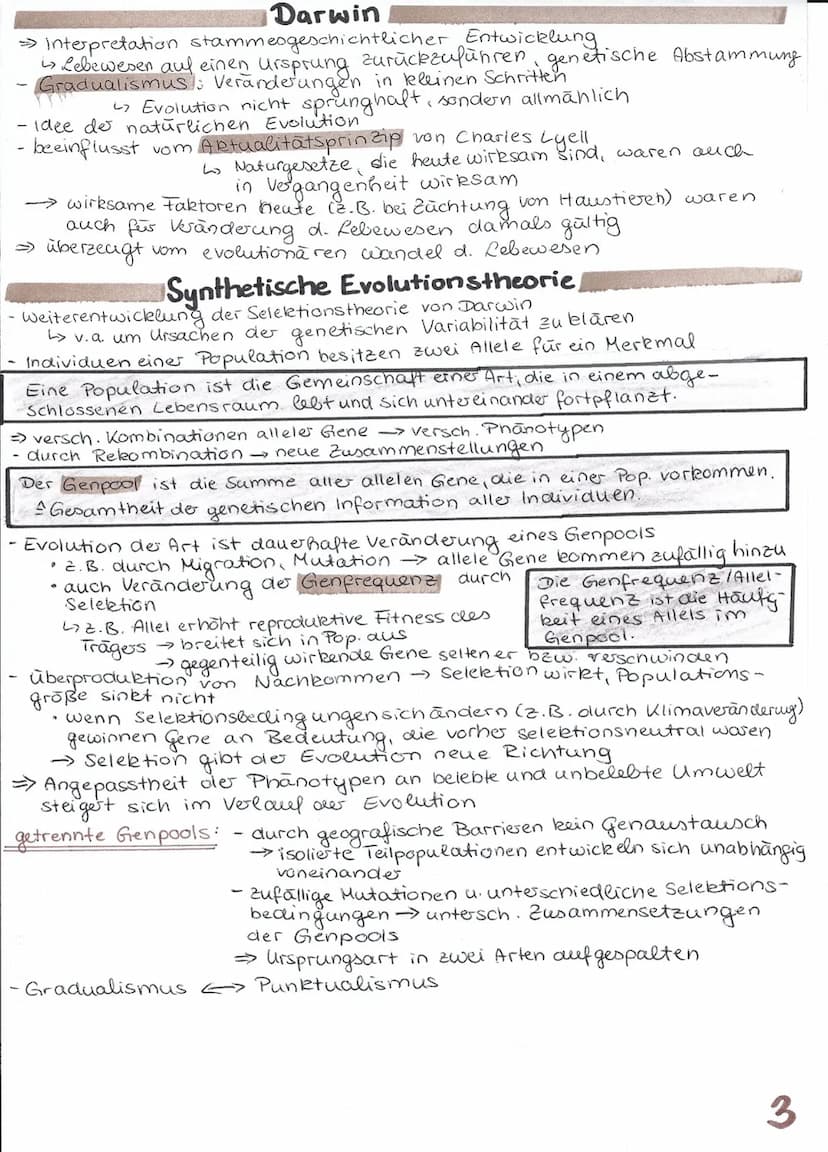 Darwin
⇒ Interpretation stammesgeschichtlicher Entwicklung
↳ Lebewesen auf einen Ursprung zurückzuführen, genetische Abstammung
- Gradualismus: Veränderungen in kleinen Schritten
↳ Evolution nicht sprunghaft, sondern allmählich
- Idee der natürlichen Evolution
- beeinflusst vom Aktualitätsprinzip von Charles Lyell
↳ Naturgesetze, die heute wirksam sind, waren auch
in Vergangenheit wirksam
→ wirksame Faktoren heute (z.B. bei Züchtung von Haustieren) waren
auch für Veränderung d. Lebewesen damals gültig
⇒ überzeugt vom evolutionären Wandel d. Lebewesen
Synthetische Evolutionstheorie
- Weiterentwicklung der Selektionstheorie von Darwin
↳ v.a. um Ursachen der genetischen Variabilität zu klären
- Individuen einer Population besitzen zwei Allele für ein Merkmal
Eine Population ist die Gemeinschaft einer Art, die in einem abge-
schlossenen Lebensraum lebt und sich untereinander fortpflanzt.
⇒ versch. Kombinationen alleler Gene → versch. Phänotypen
- durch Rekombination → neue Zusammenstellungen
Der Genpool ist die Summe aller allelen Gene, die in einer Pop. vorkommen.
≙ Gesamtheit der genetischen Information aller Individuen.
- Evolution der Art ist dauerhafte Veränderung eines Genpools
• z.B. durch Migration, Mutation → allele Gene kommen zufällig hinzu
• auch Veränderung der Genfrequenz durch
Selektion
↳ z.B. Allel erhöht reproduktive Fitness des
Trägers → breitet sich in Pop. aus
→ gegenteilig wirkende Gene seltener bzw. verschwinden
Die Genfrequenz/Allel-
frequenz ist die Häufig-
keit eines Allels im
Genpool.
- Überproduktion von Nachkommen → Selektion wirkt, Populations-
größe sinkt nicht
• wenn Selektionsbedingungen sich ändern (z.B. durch Klimaveränderug)
gewinnen Gene an Bedeutung, die vorher selektionsneutral waren
→ Selektion gibt der Evolution neue Richtung
⇒ Angepasstheit der Phänotypen an belebte und unbelebte Umwelt
steigert sich im Verlauf der Evolution
getrennte Genpools: - durch geografische Barrieren kein Genaustausch
→ isolierte Teilpopulationen entwickeln sich unabhängig
voneinander
- zufällige Mutationen u. unterschiedliche Selektions-
bedingungen → untersch. Zusammensetzungen
der Genpools
⇒ Ursprungsart in zwei Arten aufgespalten
- Gradualismus ⟷ Punktualismus
3